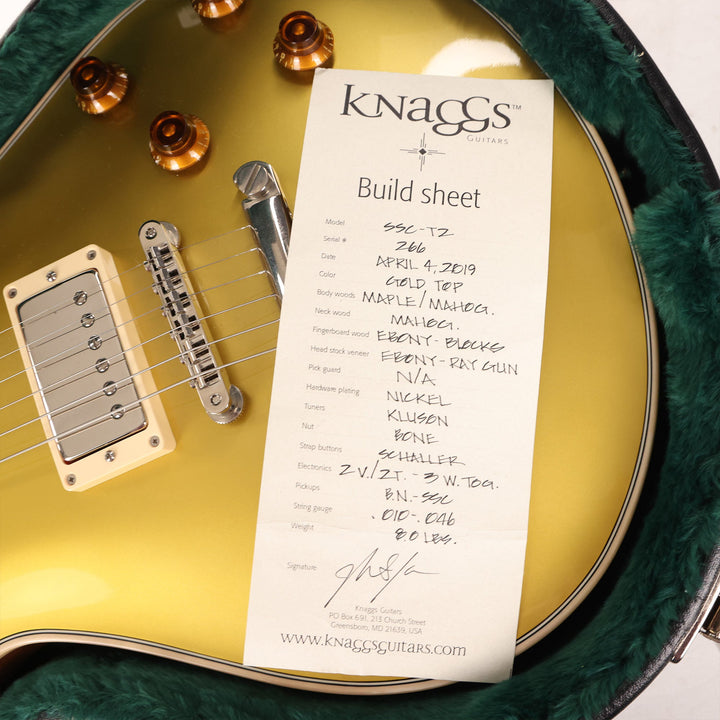 KNAGGS™
GUITARS
Build sheet
Model SSC-T2
Serial # 266
Date APRIL 4, 2019
Color GOLD TOP
Body woods MAPLE/MAHOG.
Neck wood MAHOG.
Fingerboard wood EBONY-BLOCKS
Head stock veneer EBONY-RAY GUN
Pick guard N/A
Hardware plating NICKEL
Tuners KLUSON
Nut BONE
Strap buttons SCHALLER
Electronics 2 V./2T. - 3 W. TOG.
Pickups B.N.-SSC
String gauge .010-.046
Weight 8.0 LBS.
Signature
Knaggs Guitars
PO Box 691, 213 Church Street
Greensboro, MD 21639, USA
www.knaggsguitars.com